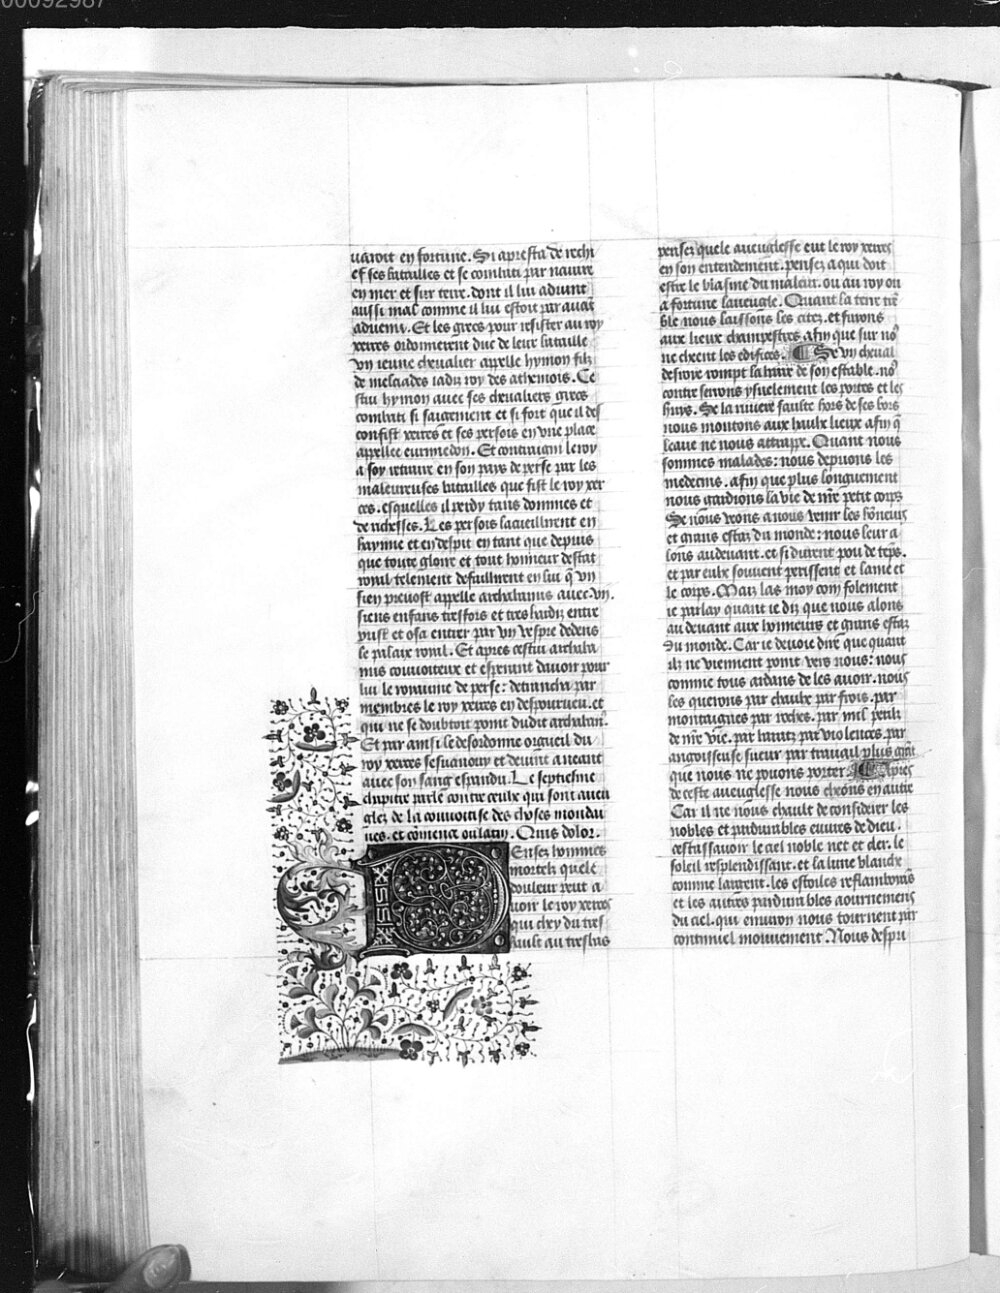 00092987
uaroit en fortune. Si apresta de rechi
ef ses batailles et se combati par nauire
en mer et sur terre. dont il lui aduint
aussi mal comme il lui estoit par auãt
aduenu. Et les grecs pour resister au roy
xerces ordonnerent duc de leur bataille
vn ieune cheualier appelle hymon filz
de melciades iadis roy des atheniois. Ce
stui hymon auec ses cheualiers grecs
combati si saigement et si fort que il des
confist xerces et ses persois en vne place
appellee eurimedon. Et contraigni le roy
a soy retraire en son pays de perse par les
maleureuses batailles que fist le roy xer
ces. esquelles il perdy tans dommes et
de richesses. Les persois lacueillirent en
hayne et en despit en tant que depuis
que toute gloire et tout honneur destat
roial telement defaillirent en lui q̃ vn
sien preuost appelle archabanus auec .vij.
siens enfans tresfors et tres hardiz entre
prist et osa entrer par vn vespre dedens
le palaix roial. Et apres cestui archaba
nus couuoiteux et esperant dauoir pour
lui le roiaume de perse: detrancha par
membres le roy xerces en despourueu. et
qui ne se doubtoit point dudit archaban.
Et par ainsi le desordonne orgueil du
roy xerces sesuanouy et deuint a neant
auec son sang espandu. Le septiesme
chapitre parle contre ceulx qui sont aueu
glez de la conuoitise des choses mondai
nes. et cõmence ou latin. Quis dolor.
Ensez hommes
mortelz quele
douleur peut a
uoir le roy xerces
qui chey du tres
hault au tresbas
pensez quele aueuglesse eut le roy xerces
en son entendement. pensez a qui doit
estre le blasme du maleur. ou au roy ou
a fortune laueugle. Quant la terre trẽ
ble nous laissons les citez. et fuions
aux lieux champestres afin que sur noꝰ
ne cheent les edifices. Se vn cheual
desroie rompt la haire de son estable. noꝰ
contre serrons ysnelement les portes et les
huys. Se la riuiere saulte hors de ses bors
nous montons aux haulx lieux afin q̃
leaue ne nous attrape. Quant nous
sommes malades: nous deprions les
medecins. afin que plus longuement
nous gardions la vie de nr̃e petit corps
Se nous veons a nous venir les hõneurs
et grans estaz du monde: nous leur a
lons audeuant. et si durent pou de tẽps.
et par eulx souuent perissent et lame et
le corps. Maiz las moy com folement
ie parlay quant ie diz que nous alons
au deuant aux honneurs et grans estaz
du monde. Car ie deuoie dire que quant
ilz ne viennent point vers nous: nous
comme tous ardans de les auoir. nous
les querons par chaulx par frois. par
montaignes par roches. par mil perilz
de nr̃e vie. par baratz par violences. par
angoisseuse sueur par trauail plus grãt
que nous ne pouons porter. Apres
de ceste aueuglesse nous cheons en autre
Car il ne nous chault de considerer les
nobles et pardurables euures de dieu.
cestassauoir le ciel noble net et cler. le
soleil resplendissant. et la lune blanche
comme largent. les estoiles reflamboians
et les autres pardurables aournemens
du ciel. qui enuiron nous tournent par
continuel mouuement. Nous despri